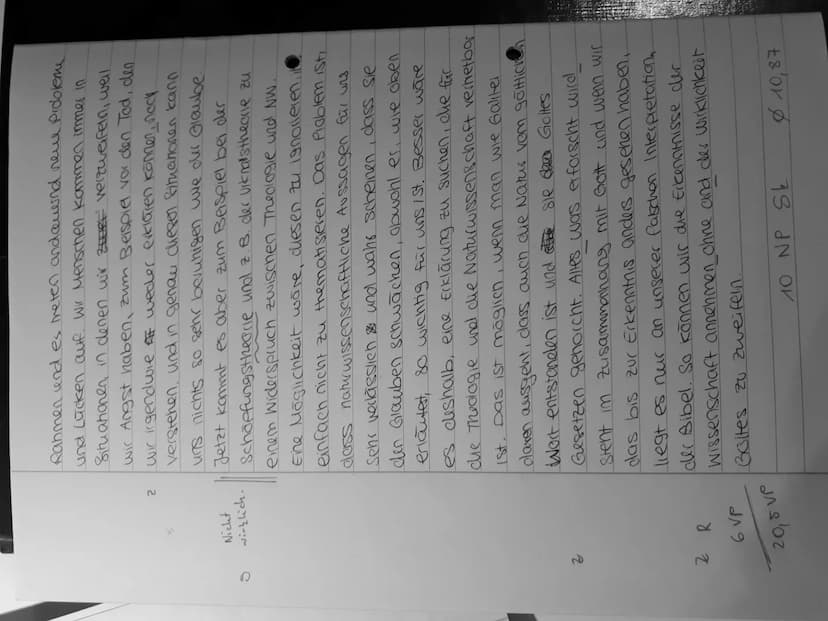 Rahmen und es treten andauernd neue Probleme
und Lücken auf. Wir Menschen kommen immer in
Situationen in denen wir verzweifeln, weil
wir Angst haben, zum Beispiel vor den Tod, den
z
wir irgendwie weder erklären können, noch
verstehen, und in genau diesen Situationen kann
uns nichts so sehr beruhigen wie der Glaube
S Nicht wirklich.
Jetzt kommt es aber zum Beispiel bei der
Schöpfungstheorie und z.B. der Urknalltheorie zu
einem Widerspruch zwischen Theologie und NW.
Eine Möglichkeit wäre, diesen zu ignorieren,
einfach nicht zu thematisieren. Das Problem ist,
dass naturwissenschaftliche Aussagen für uns
sehr verlässlich und wahr scheinen, dass sie
den Glauben schwächen, obwohl er, wie oben
erläutet, so wichtig für uns ist. Besser wäre
es deshalb, eine Erklärung zu suchen, die für
die Theologie und die Naturwissenschaft vertretbar
ist. Das ist möglich, wenn man wie Galilei
davon ausgeht, dass auch die Natur vom göttlichen
Wort entstanden ist und sie Gottes
z
Gesetzen gehorcht. Alles was erforscht wird
steht im Zusammenhang mit Gott und wenn wir
das bis zur Erkenntnis anders gesehen haben,
liegt es nur an unserer falschen Interpretation
der Bibel. So können wir die Erkenntnisse der
z R
Wissenschaft annehmen ohne an der Wirklichkeit
6 VP
Gottes zu zweifeln.
20,5 VP
10 NP Sk ø 10,87